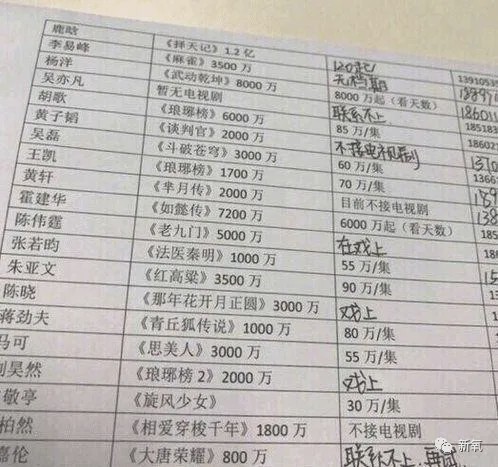 鹿晗 《择天记》1.2 亿 120起/
李易峰 《麻雀》3500 万 无档期
杨洋 《武动乾坤》8000 万 8000 万起（看天数）
吴亦凡 暂无电视剧 联系不上
胡歌 《琅琊榜》6000 万 85 万/集
黄子韬 《谈判官》2000 万 不接电视剧
吴磊 《斗破苍穹》3000 万 60 万/集
王凯 《琅琊榜》1700 万 70 万/集
黄轩 《芈月传》2000 万 目前不接电视剧
霍建华 《如懿传》7200 万 6000 万起（看天数）
陈伟霆 《老九门》5000 万 在戏上
张若昀 《法医秦明》1000 万 55 万/集
朱亚文 《红高粱》3500 万 90 万/集
陈晓 《那年花开月正圆》3000 万 戏上
蒋劲夫 《青丘狐传说》1000 万 80 万/集
马可 《思美人》3000 万 55 万/集
昊然 《琅琊榜 2》2000 万 戏上
敬亭 《旋风少女》 30 万/集
柏然 《相爱穿梭千年》1800 万 不接电视剧
嘉伦 《大唐荣耀》800 万 联系不上
新氧